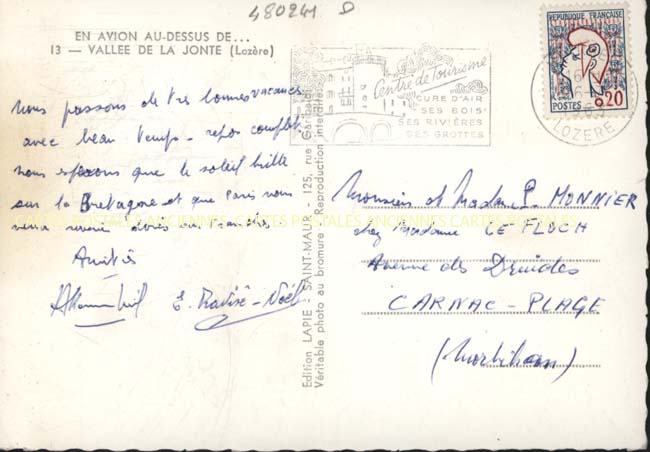 480241 D
EN AVION AU-DESSUS DE...
13 — VALLEE DE LA JONTE (Lozère)
Nous passons de très bonnes vacances
avec beau temps - repos complet.
nous espérons que le soleil brille
sur la Bretagne et que Paris vous
verra revenir
Amitiés
CARTES POSTALES ANCIENNES CARTES POSTALES ANCIENNES CARTES POSTALES
Edition LAPIE - SAINT-MAUR - 125, rue
Véritable photo au bromure - Reproduction interdite
Centre de Tourisme
CURE D'AIR
SES BOIS
SES RIVIÈRES
DES GROTTES
REPUBLIQUE FRANÇAISE
POSTES 0,20
LOZERE
Monsieur et Madame P. MONNIER
chez Madame LE FLOCH
Avenue des Druides
CARNAC - PLAGE
(Morbihan)